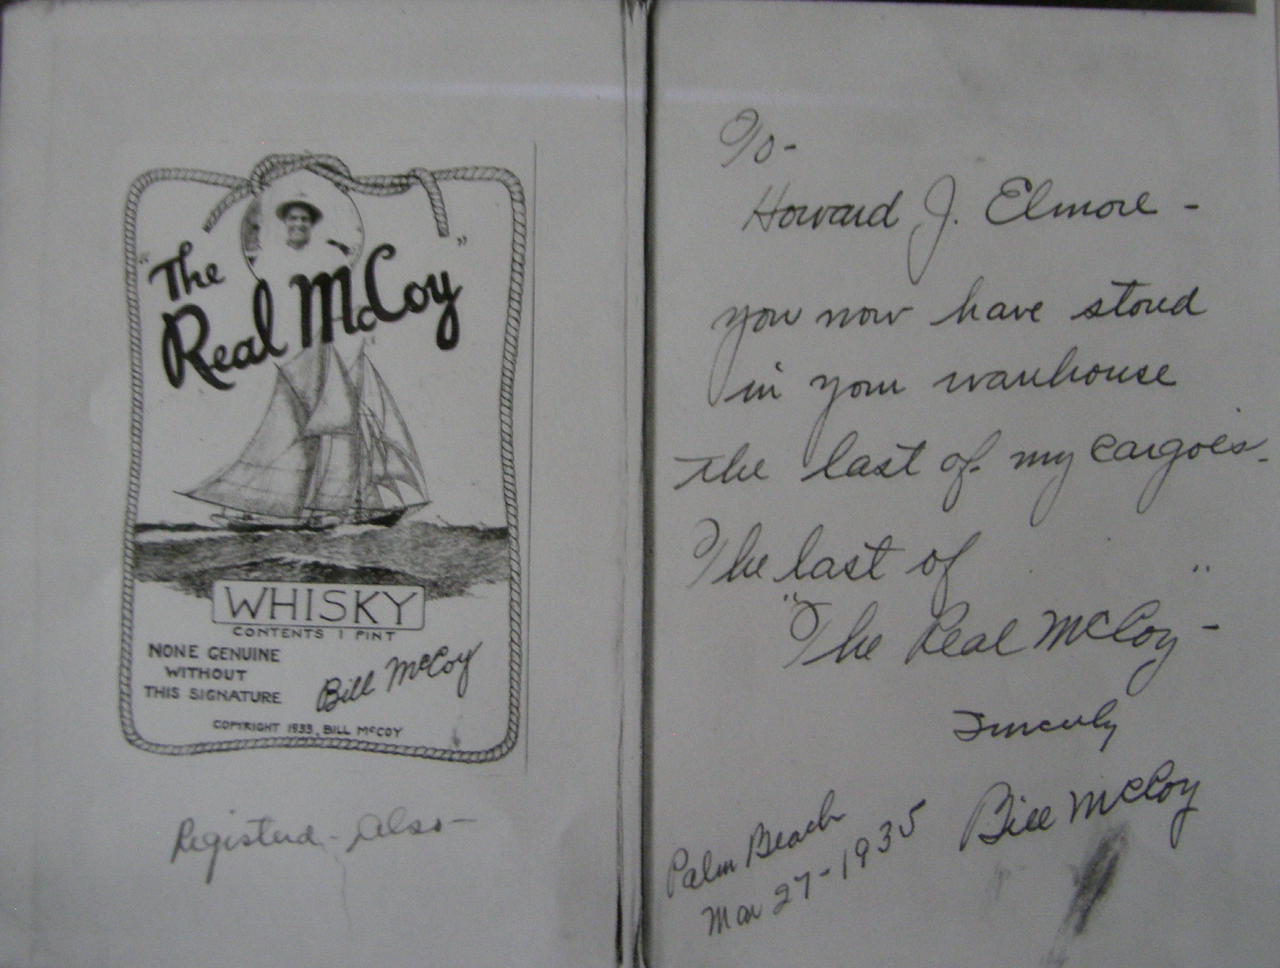 "The
Real McCoy"
WHISKY
CONTENTS 1 PINT
NONE GENUINE
WITHOUT
THIS SIGNATURE
Bill McCoy
COPYRIGHT 1933, BILL McCOY
Registered - Also -
To -
Howard J. Elmore -
you now have stored
in your warehouse
the last of my cargoes -
The last of
"The Real McCoy" -
Sincerely
Bill McCoy
Palm Beach
Mar 27 - 1935